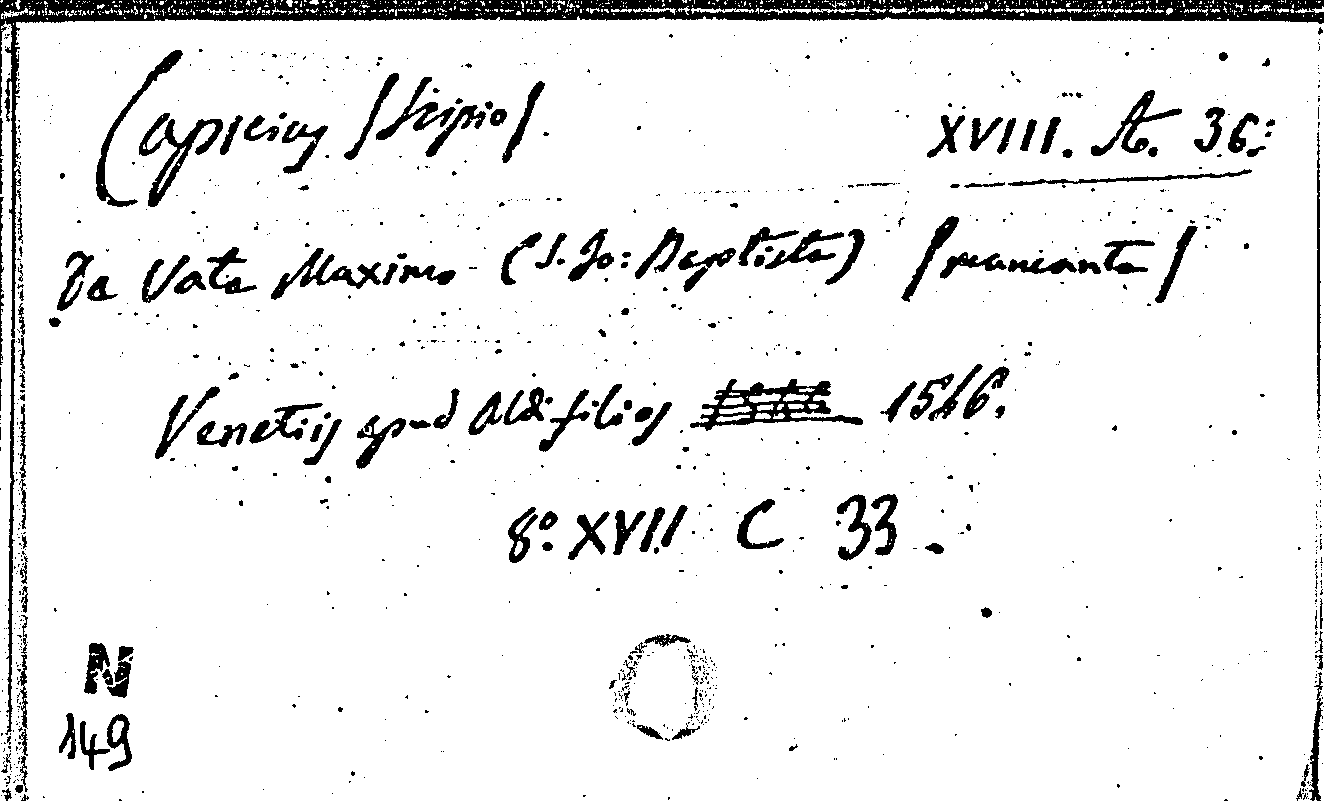 Capicius /Scipio/ XVIII. A. 36.
De Vate Maximo (S. Jo: Baptista) /mancante/
Venetiis apud Aldi filios 1546 1546.
8° XVII C 33.
N
149